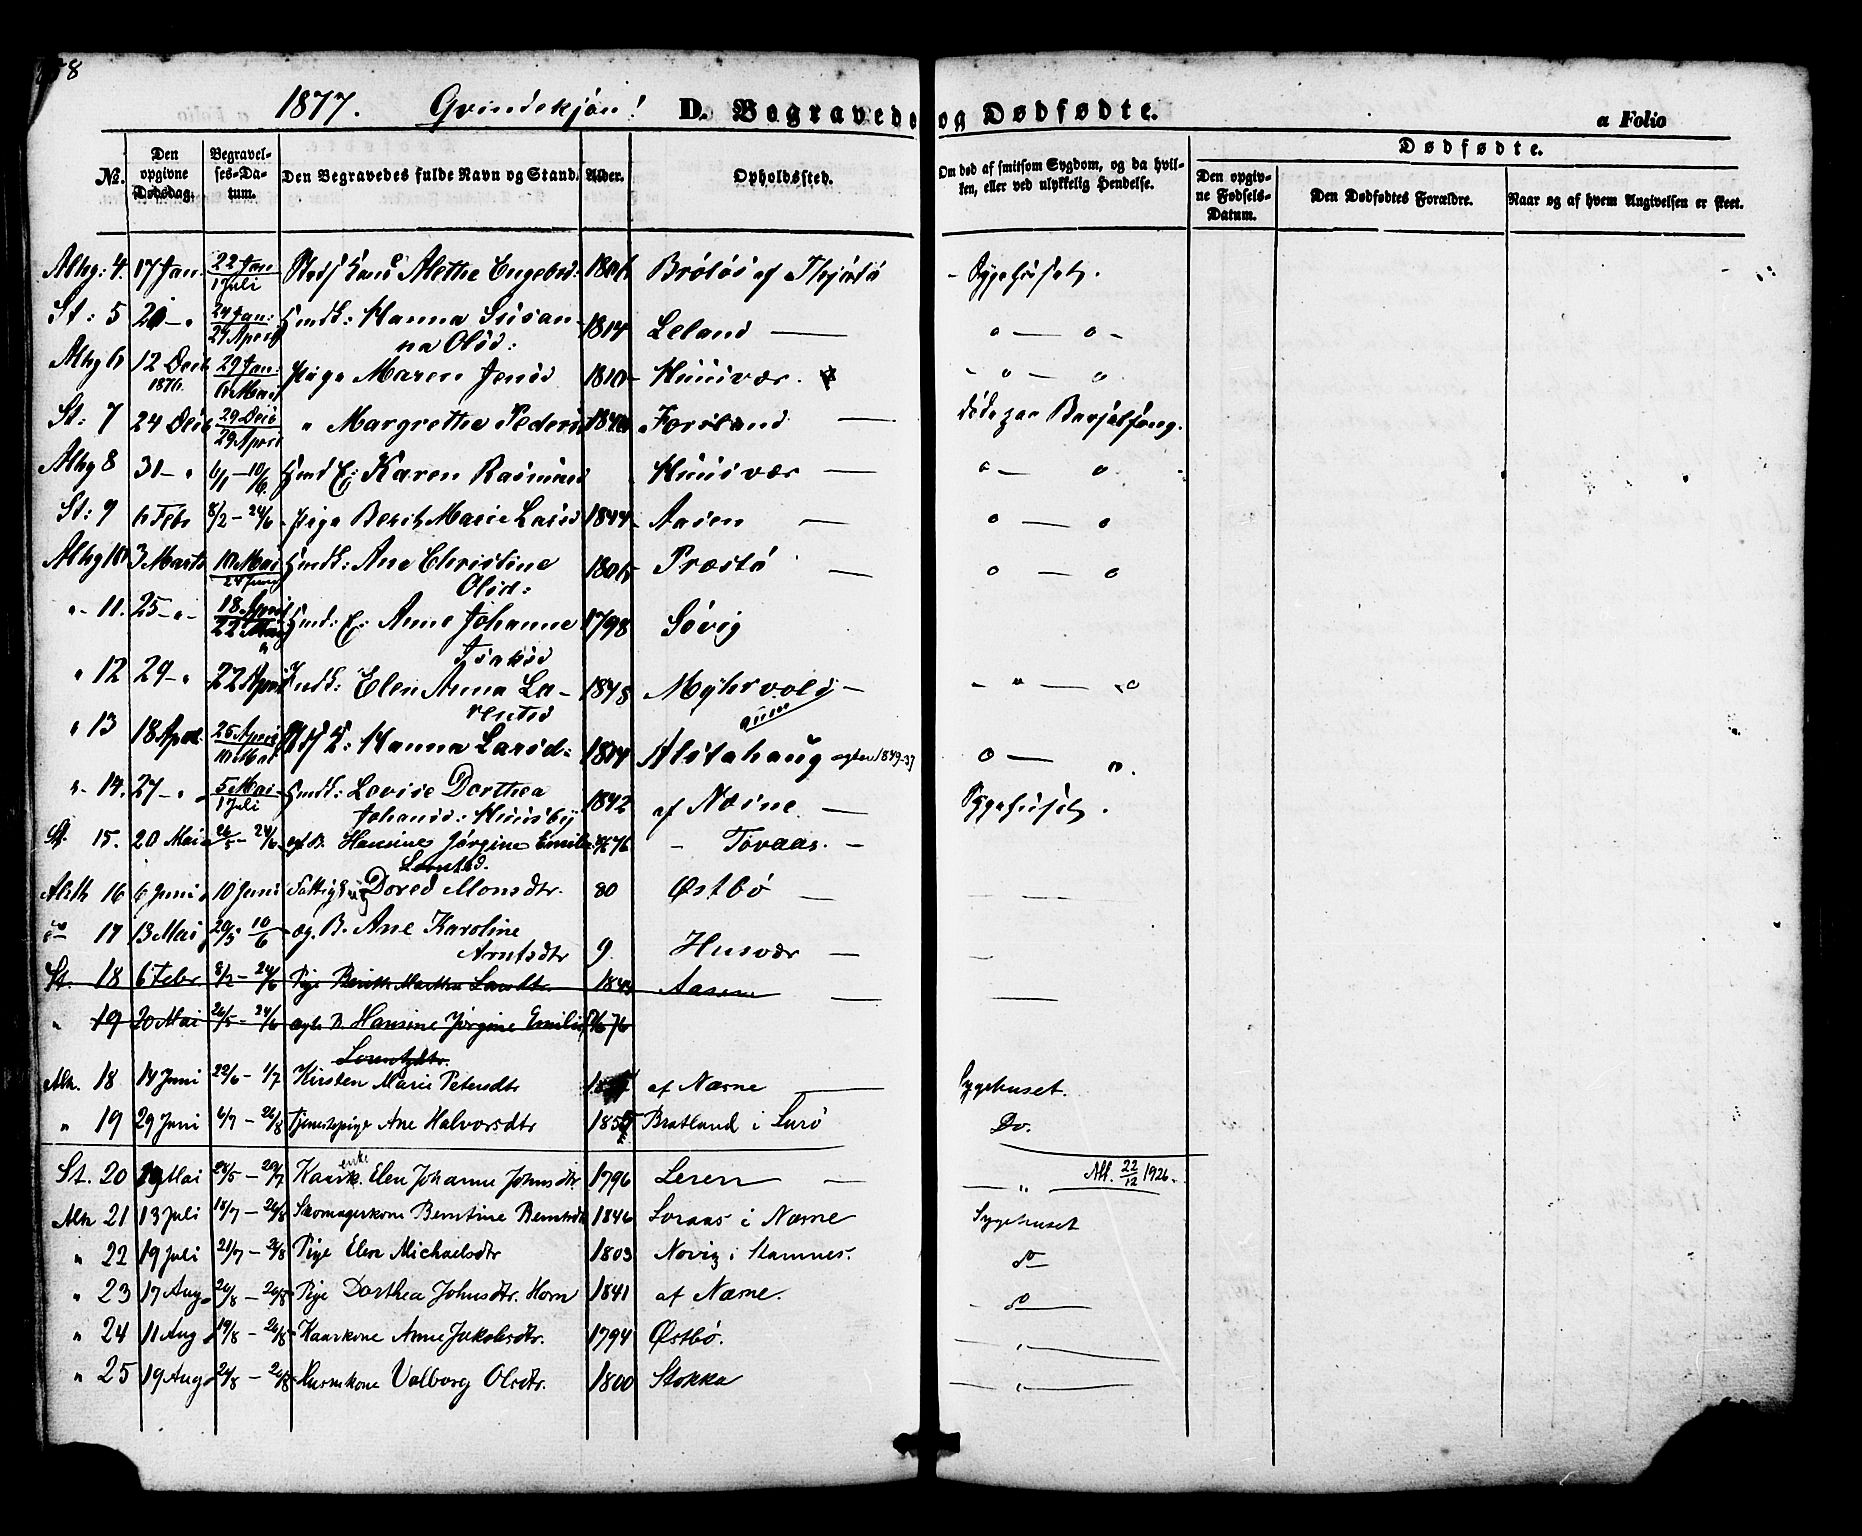 1877. Qvindekjøn! D. Begravede og Dødfødte. a Folio
No. Den opgivne Dødsdag. Begravelses-Datum. Den Begravedes fulde Navn og Stand. Alder. Opholdssted. Om død af smitsom Sygdom, og da hvilken, eller ved ulykkelig Hendelse. Dødfødte.
Den opgivne Fødsels-Datum. Den Dødfødtes Forældre. Naar og af hvem Angivelsen er skeet.
Alhg: 4. 17 Jan. 22 Jan 1 Juli Alethe Engebrd: af Thjøtø Sygehuset.
St: 5 24 Jan: 29 April Husmk: Hanna Susan-
na Olsd: 1814 Leland — " — " -
Alhg 6 12 Decb 1876. 29 Jan: 6 Mai Pige Maren Jensd 1810 Huusvær. " — "
St: 7 24 Decb 29 Decb 29 April " Margrethe Pedersd Forsland — døde paa Barselseng.
Alhg 8 31 - " 6/1 - 10/6 Karen Rasmusd Huusvær — " — "
St: 9 6 Febr 8/2 - 24/6 Pige Berit Marie Larsd 1844 Aasen — " — "
Alhg 10 3 Marts 10 Mai 24 Juni Husmk: Ane Christine
Olsd: Præstø — " — "
" 11. 25 - " 18 April 22 Mai Anne Johanne
Isaksd 1798 Søvig
" 12 29 - " 22 April Elen Anna La-
rentsd Myhrvold — " — "
" 13 18 Apr. 25 April 10 Mai Hanna Larsd: 1814 Alstahaug " — "
" 14. 27 - " 5 Mai 1 Juli Husmk: Lovise Dorthea
Johansd: Huusby 1842 af Næsne — Sygehuset.
St. 15. 20 Mai 26/5 - 24/6 egt. B. Hansine Jørgine Emilie
Lorntsd. 76 - Tovaas. -
Alsth 16 6 Juni 10 Juni Dored Monsdtr. 80 Østbø —
do 17 13 Mai 20/5 10/6 æg. B. Ane Karoline
Arntsdtr 9. Husvær —
St. 18 6 Febr 8/2 - 24/6 Pige Aasen —
" 19 20 Mai 26/5 - 24/6 ægte B. Hansine Jørgine Emilie 76
Lorntzdtr.
Alh. 18 14 Juni 22/6 - 1/7 Kirsten Marie Petersdtr af Næsne — Sygehuset.
" 19 29 Juni 6/7 - 26/8 Tjenestepige Ane Halvorsdtr Bratland i Lurø Do.
St. 20 Mai 28/5 - 20/7 Kaark. enke Elen Johanne Johnsdtr. 1796 Leren — — " — Att. 22/12 1926.
Alh 21 13 Juli 18/7 - 26/8 Skomagerkone Berntine Berntsdtr 1846 Soraas i Næsne Sygehuset
" 22 19 Juli 21/7 - 26/8 Pige Elen Michaelsdtr 1803 Novig i Stamnes. do
" 23 17 Aug. 26/8 - 26/8 Pige Dorthea Johnsdtr. Horn 1841 af Næsne. - do
" 24 11 Aug 19/8 - 26/8 Kaarkone Anne Jakobsdtr. 1794 Østbø. "
" 25 19 Aug 24/8 - 26/8 Husmkone Valborg Olsdtr. 1800 Stokka — " —